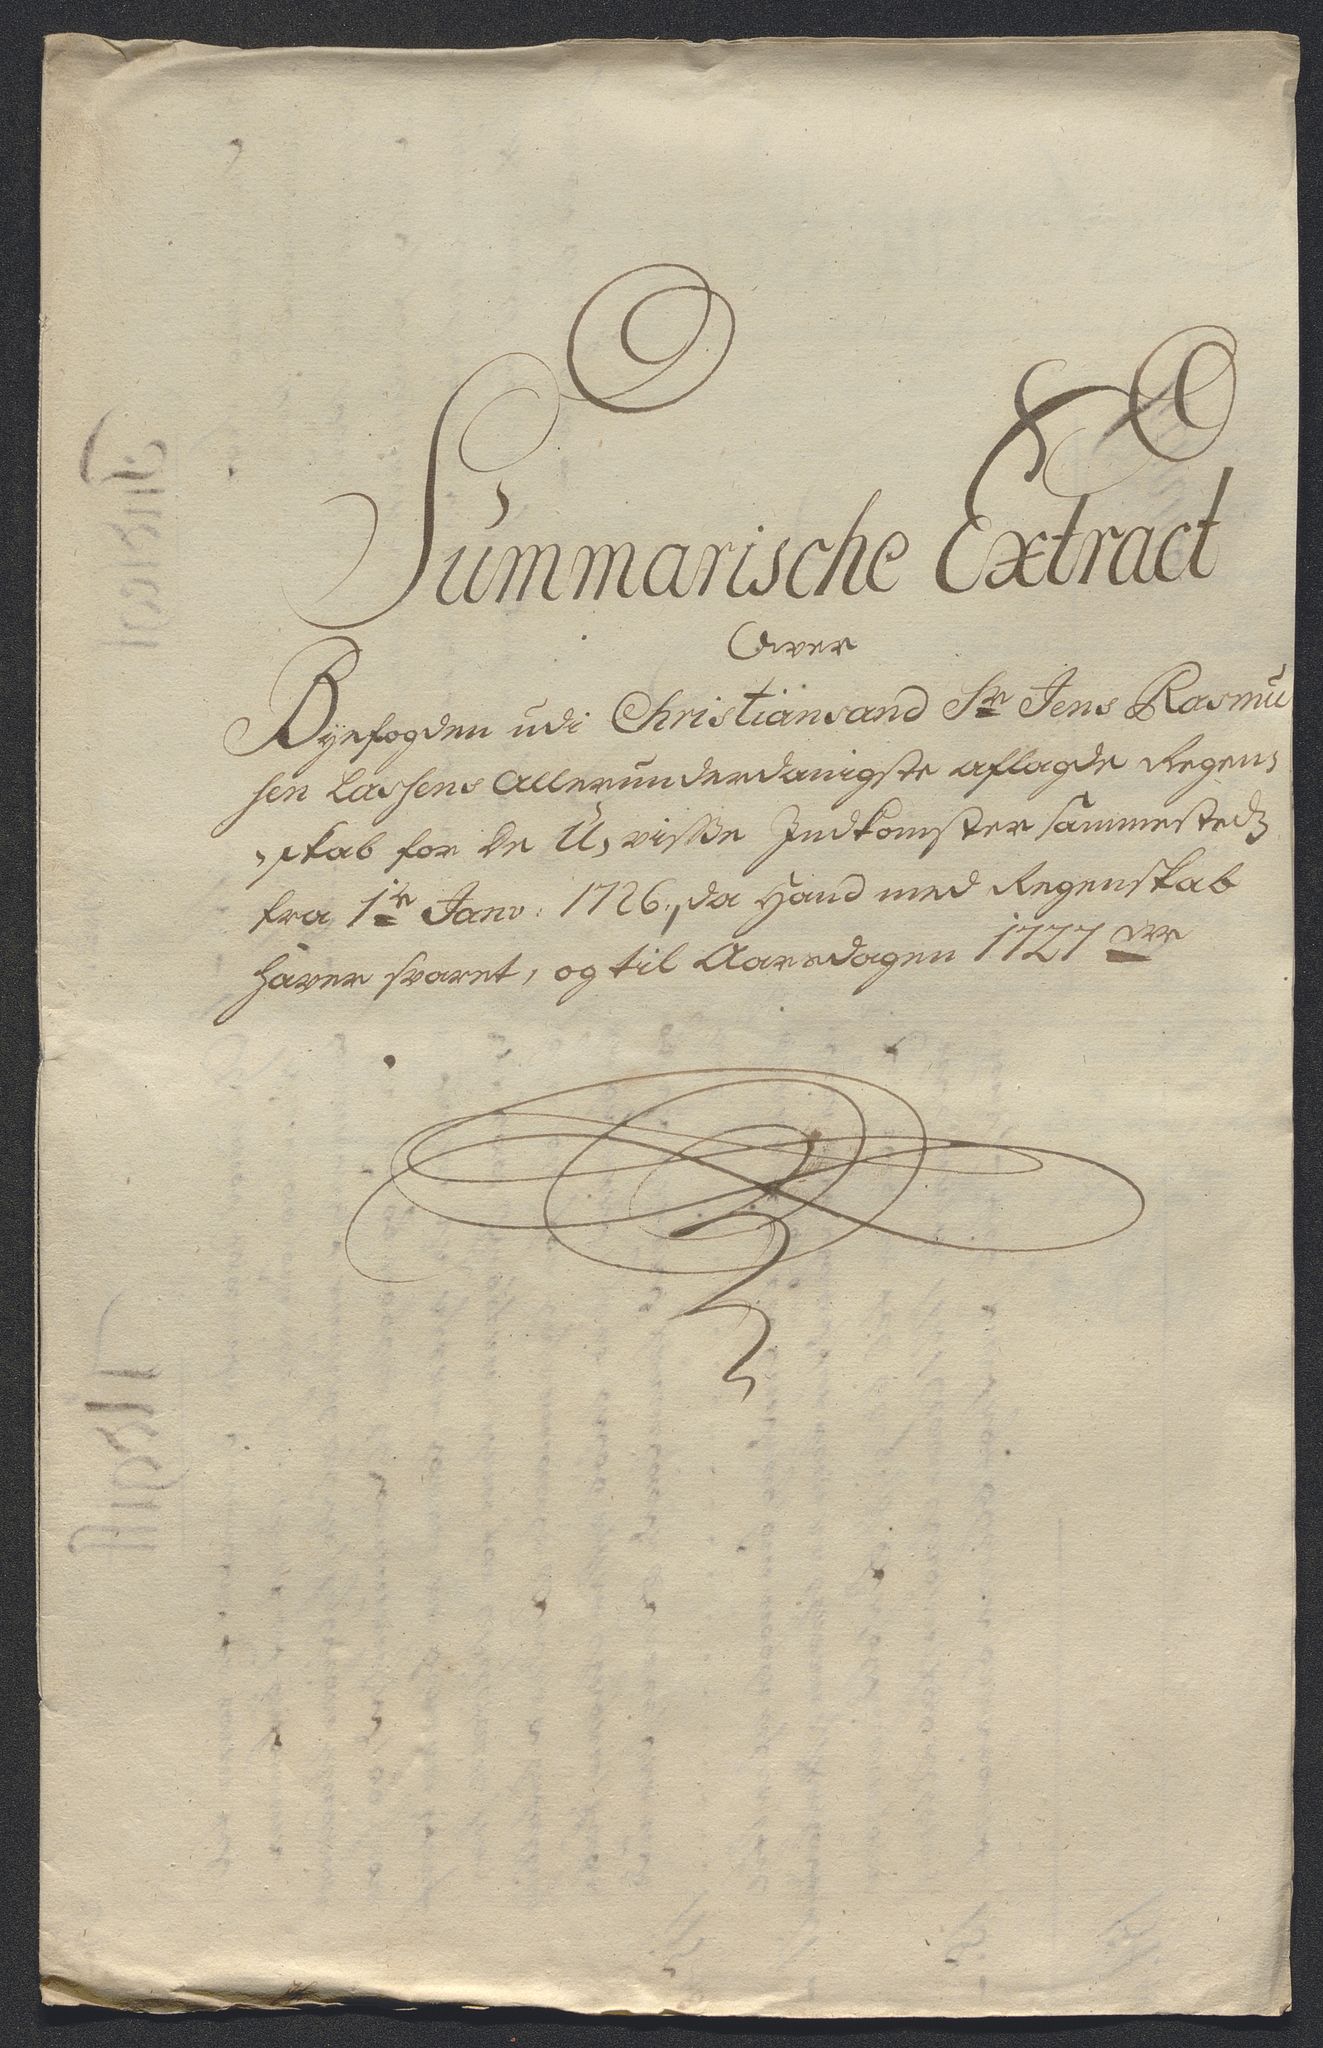 Summarische Extract
Over
Byefogden udi Christiansand Sr Jens Rasmu
sen Lassens Allerunderdanigste aflagde Regen,
,skab for de U,visse Indkomster sammestedz
fra 1te Janv: 1726, da Hand med Regenskab
haver svaret, og til Aarsdagen 1727